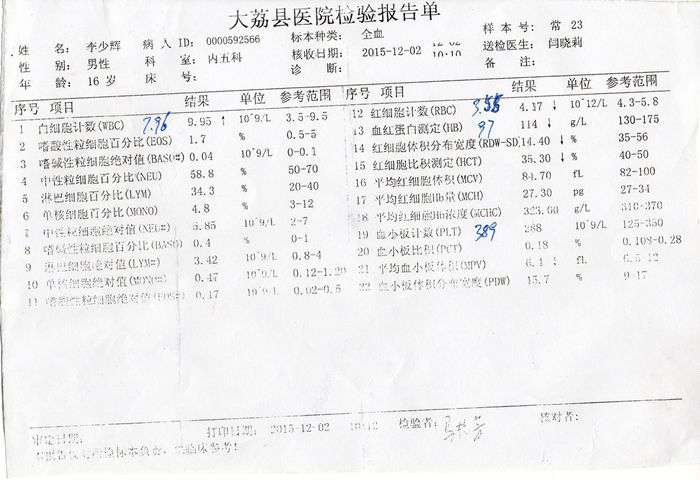 大荔县医院检验报告单
姓 名: 李少辉 病人ID: 0000592566 标本种类: 全血 样本号: 常 23
性 别: 男性 科 室: 内五科 核收日期: 2015-12-02 10:10 送检医生: 闫晓莉
年 龄: 16 岁 床 号: 诊 断: 备 注:
序号 项目 结果 单位 参考范围
1 白细胞计数(WBC) 7.96 9.95 ↑ 10^9/L 3.5-9.5
2 嗜酸性粒细胞百分比(EOS) 1.7 % 0.5-5
3 嗜碱性粒细胞绝对值(BASO#) 0.04 10^9/L 0-0.1
4 中性粒细胞百分比(NEU) 58.8 % 50-70
5 淋巴细胞百分比(LYM) 34.3 % 20-40
6 单核细胞百分比(MONO) 4.8 % 3-12
7 中性粒细胞绝对值(NEU#) 5.85 10^9/L 2-7
8 嗜碱性粒细胞百分比(BASO) 0.4 % 0-1
9 淋巴细胞绝对值(LYM#) 3.42 10^9/L 0.8-4
10 单核细胞绝对值(MONO#) 0.47 10^9/L 0.12-1.20
11 嗜酸性粒细胞绝对值(EOS#) 0.17 10^9/L 0.02-0.5
序号 项目 结果 单位 参考范围
12 红细胞计数(RBC) 3.55 4.17 ↓ 10^12/L 4.3-5.8
13 血红蛋白测定(HB) 97 114 ↓ g/L 130-175
14 红细胞体积分布宽度(RDW-SD) 14.40 ↓ % 35-56
15 红细胞比积测定(HCT) 35.30 ↓ % 40-50
16 平均红细胞体积(MCV) 84.70 fL 82-100
17 平均红细胞Hb量(MCH) 27.30 pg 27-34
18 平均红细胞Hb浓度(MCHC) 323.00 g/L 316-370
19 血小板计数(PLT) 389 288 10^9/L 125-350
20 血小板比积(PCT) 0.18 % 0.108-0.28
21 平均血小板体积(MPV) 6.1 ↓ fL 6.5-12
22 血小板体积分布宽度(PDW) 15.7 % 9-17
审定日期: 打印日期: 2015-12-02 10:12 检验者: 核对者:
本报告仅对所检标本负责, 供临床参考!